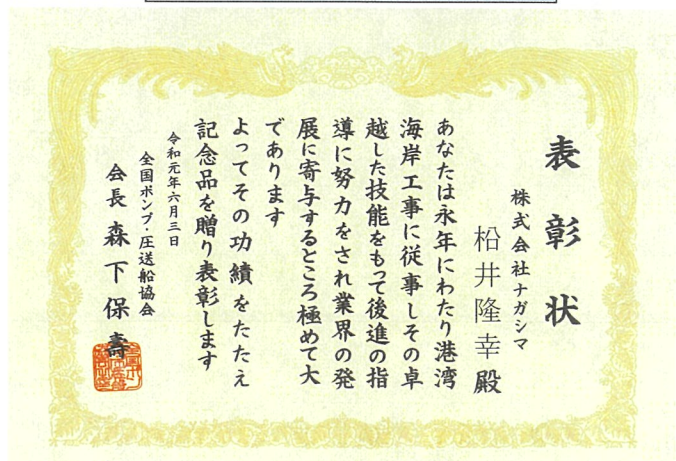 表彰状
株式会社ナガシマ
松井隆幸殿
あなたは永年にわたり港湾
海岸工事に従事しその卓
越した技能をもって後進の指
導に努力をされ業界の発
展に寄与するところ極めて大
であります
よってその功績をたたえ
記念品を贈り表彰します
令和元年六月三日
全国ポンプ・圧送船協会
会長 森下保壽